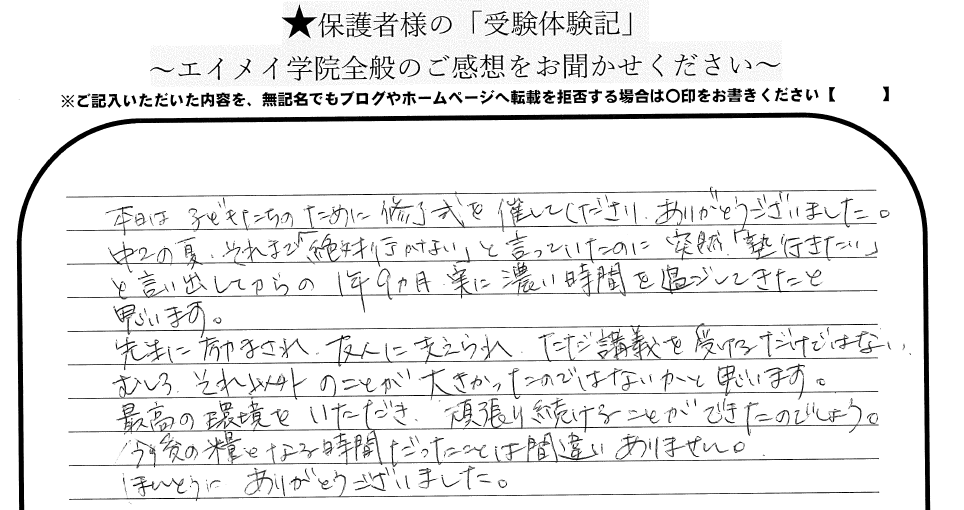 ★保護者様の「受験体験記」
～エイメイ学院全般のご感想をお聞かせください～
※ご記入いただいた内容を、無記名でもブログやホームページへ転載を拒否する場合は〇印をお書きください【　　　】
本日は子どもたちのために修了式を催してくださり、ありがとうございました。
中2の夏、それまで「絶対行かない」と言っていたのに突然「塾行きたい」
と言い出してからの1年9カ月、実に濃い時間を過ごしてきたと
思います。
先生に励まされ、友人に支えられ、ただ講義を受けるだけではない、
むしろ、それ以外のことが大きかったのではないかと思います。
最高の環境をいただき、頑張り続けることができたのでしょう。
今後の糧となる時間だったことは間違いありません。
ほんとうに ありがとうございました。